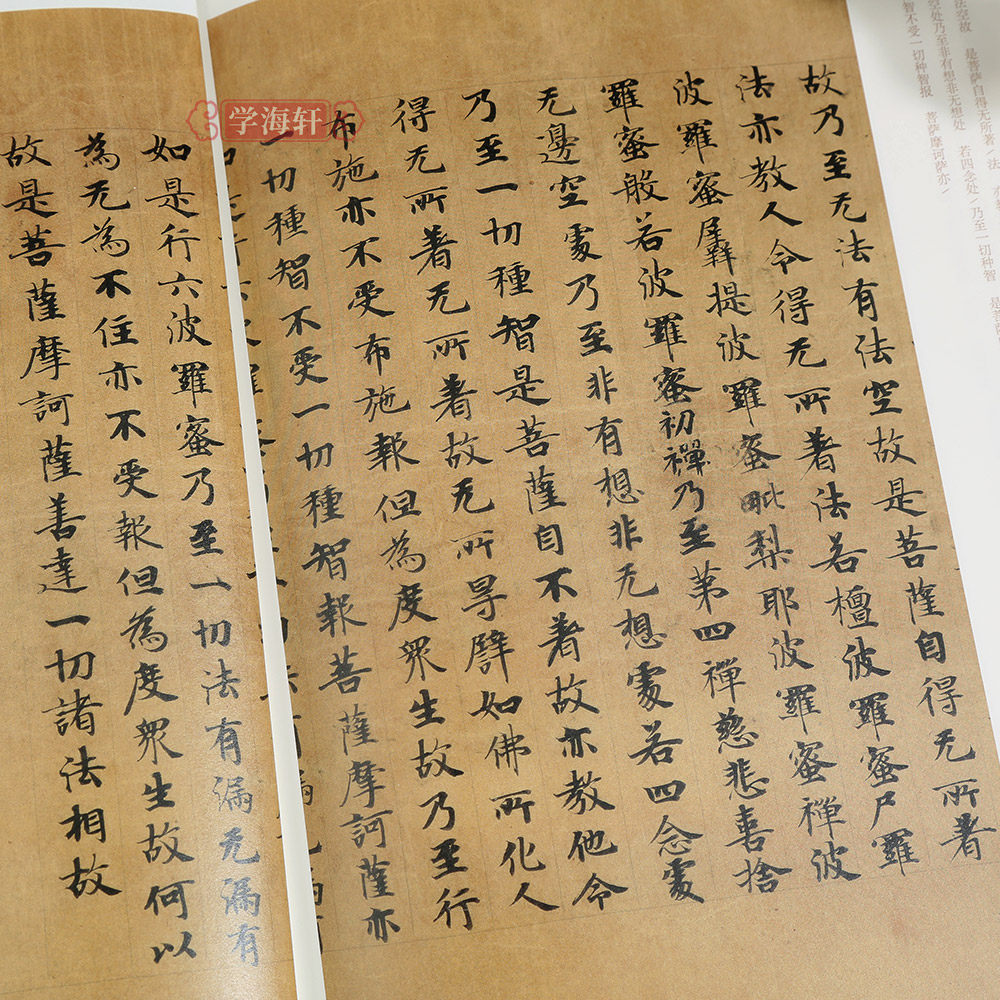 法空故　是菩萨自得无所著/法
空处乃至非有想非无想处　若四念处/乃至一切种智　是菩萨
智不受一切种智报　菩萨摩诃萨亦/
故乃至无法有法空故是菩薩自得无所著
法亦教人令得无所著法若檀波羅蜜尸羅
波羅蜜羼提波羅蜜毗梨耶波羅蜜禪波
羅蜜般若波羅蜜初禪乃至第四禪慈悲喜捨
无邊空處乃至非有想非无想處若四念處
乃至一切種智是菩薩自不著故亦教他令
得无所著无所著故无所㝵譬如佛所化人
布施亦不受布施報但為度衆生故乃至行
一切種智不受一切種智報菩薩摩訶薩亦
如是行六波羅蜜乃至一切法有漏无漏有
為无為不住亦不受報但為度衆生故何以
故是菩薩摩訶薩善達一切諸法相故
学海轩